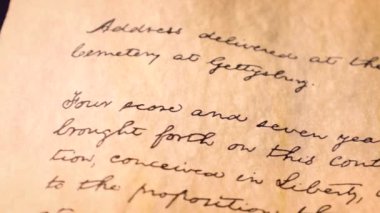 Address delivered at the
Cemetery at Gettysburg.
Four score and seven yea
brought forth on this cont
tion, conceived in Liberty,
to the proposition